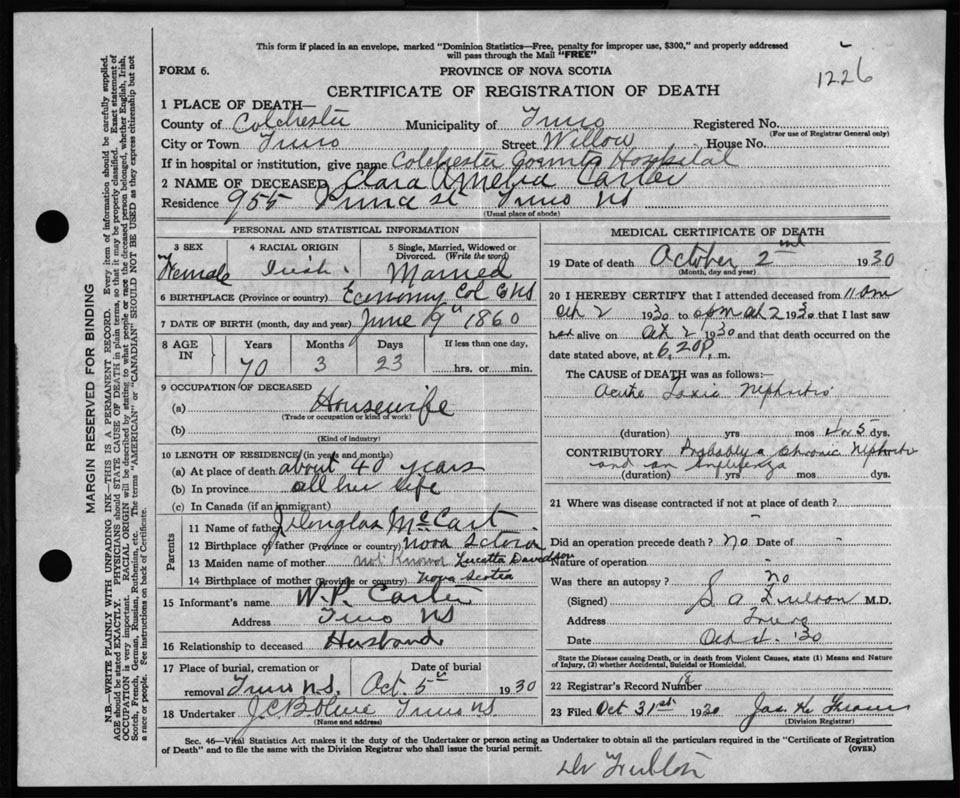 This form if placed in an envelope, marked "Dominion Statistics—Free, penalty for improper use, $300," and properly addressed
will pass through the Mail "FREE"
FORM 6.
PROVINCE OF NOVA SCOTIA
1226
CERTIFICATE OF REGISTRATION OF DEATH
1 PLACE OF DEATH—
County of Colchester Municipality of Truro Registered No.
(For use of Registrar General only)
City or Town Truro Street Willow House No.
If in hospital or institution, give name Colchester County Hospital
2 NAME OF DECEASED Clara Amelia Carter
Residence 955 Prince St Truro NS
(Usual place of abode)
PERSONAL AND STATISTICAL INFORMATION
3 SEX
Female
4 RACIAL ORIGIN
Irish
5 Single, Married, Widowed or
Divorced. (Write the word)
Married
6 BIRTHPLACE (Province or country) Economy Col Co NS
7 DATE OF BIRTH (month, day and year) June 9th 1860
8 AGE IN
Years Months Days If less than one day,
70 3 23 hrs. or min.
9 OCCUPATION OF DECEASED
(a) Housewife
(Trade or occupation or kind of work)
(b)
(Kind of industry)
10 LENGTH OF RESIDENCE (in years and months)
(a) At place of death about 40 years
(b) In province all her life
(c) In Canada (if an immigrant)
Parents
11 Name of father J Douglas McCart
12 Birthplace of father (Province or country) Nova Scotia
13 Maiden name of mother not Known Davidson
14 Birthplace of mother (Province or country) Nova Scotia
15 Informant's name W.P. Carter
Address Truro NS
16 Relationship to deceased Husband
17 Place of burial, cremation or Date of burial
removal Truro N.S. Oct. 5th 1930
18 Undertaker J.C.B. Olive Truro NS
(Name and address)
MEDICAL CERTIFICATE OF DEATH
19 Date of death October 2nd 1930
(Month, day and year)
20 I HEREBY CERTIFY that I attended deceased from 11 am
Oct 2 1930 to 6 pm Oct 2 1930 that I last saw
her alive on Oct 2 1930 and that death occurred on the
date stated above, at 6.20 P. m.
The CAUSE of DEATH was as follows:—
Acute Toxic Nephritis
(duration) yrs mos 4 or 5 dys.
CONTRIBUTORY Probably a Chronic Nephritis
and an Influenza
(duration) yrs mos dys.
21 Where was disease contracted if not at place of death?
Did an operation precede death? no Date of
Nature of operation
Was there an autopsy? no
(Signed) S a Fulton M.D.
Address Truro
Date Oct '30
State the Disease causing Death, or in death from Violent Causes, state (1) Means and Nature
of Injury, (2) whether Accidental, Suicidal or Homicidal.
22 Registrar's Record Number
23 Filed Oct 31st 1930 Jas.
(Division Registrar)
Sec. 46—Vital Statistics Act makes it the duty of the Undertaker or person acting as Undertaker to obtain all the particulars required in the "Certificate of Registration
of Death" and to file the same with the Division Registrar who shall issue the burial permit.
(OVER)
Dr Fulton
MARGIN RESERVED FOR BINDING
N.B.—WRITE PLAINLY WITH UNFADING INK—THIS IS A PERMANENT RECORD. Every item of information should be carefully supplied.
AGE should be stated EXACTLY. PHYSICIANS should STATE CAUSE OF DEATH in plain terms, so that it may be properly classified. Exact statement of
OCCUPATION is very important. RACIAL ORIGIN will be described by stating to what people or race the deceased person belonged, whether English, Irish,
Scotch, French, German, Russian, Ruthenian, etc. The terms "AMERICAN" or "CANADIAN" SHOULD NOT BE USED as they express citizenship but not
a race or people. See instructions on back of Certificate.